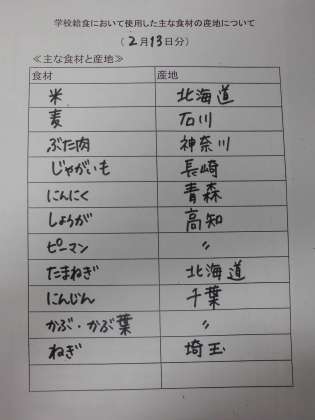 学校給食において使用した主な食材の産地について
(2月13日分)
≪主な食材と産地≫
食材 産地
米 北海道
麦 石川
ぶた肉 神奈川
じゃがいも 長崎
にんにく 青森
しょうが 高知
ピーマン 〃
たまねぎ 北海道
にんじん 千葉
かぶ・かぶ葉 〃
ねぎ 埼玉